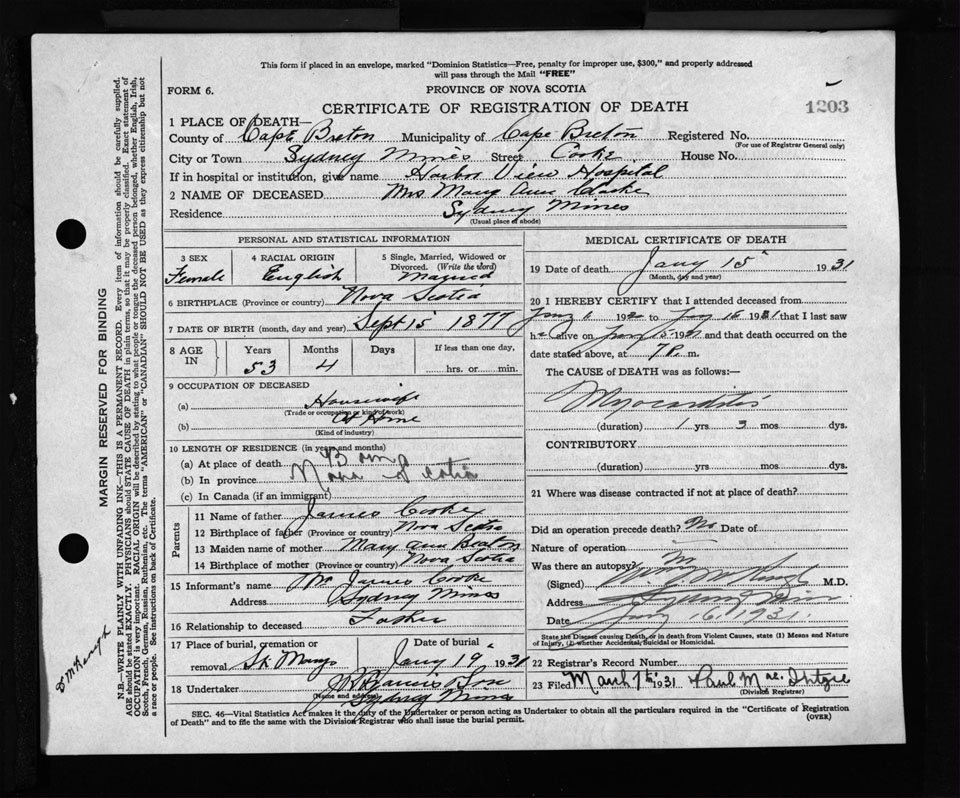 This form if placed in an envelope, marked "Dominion Statistics—Free, penalty for improper use, $300," and properly addressed
will pass through the Mail "FREE"
FORM 6. PROVINCE OF NOVA SCOTIA
CERTIFICATE OF REGISTRATION OF DEATH 1203
1 PLACE OF DEATH—
County of Cape Breton Municipality of Cape Breton Registered No.
(For use of Registrar General only)
City or Town Sydney Mines Street Cooke House No.
If in hospital or institution, give name Harbor View Hospital
2 NAME OF DECEASED Mrs Mary Ann
Residence Sydney Mines
(Usual place of abode)
PERSONAL AND STATISTICAL INFORMATION
3 SEX 4 RACIAL ORIGIN 5 Single, Married, Widowed or
Divorced. (Write the word)
Female English Married
6 BIRTHPLACE (Province or country) Nova Scotia
7 DATE OF BIRTH (month, day and year) Sept 15 1877
8 AGE IN Years Months Days If less than one day,
53 4 hrs. or min.
9 OCCUPATION OF DECEASED
(a) Housewife
(Trade or occupation or kind of work)
(b) At Home
(Kind of industry)
10 LENGTH OF RESIDENCE (in years and months)
(a) At place of death Born
(b) In province Nova Scotia
(c) In Canada (if an immigrant)
Parents
11 Name of father James Cooke
12 Birthplace of father (Province or country) Nova Scotia
13 Maiden name of mother Mary Ann Beaton
14 Birthplace of mother (Province or country) Nova Scotia
15 Informant's name Mr James Cooke
Address Sydney Mines
16 Relationship to deceased Father
17 Place of burial, cremation or Date of burial
removal St. Marys Jany 19 1931
18 Undertaker Son
(Name and address) Sydney Mines
MEDICAL CERTIFICATE OF DEATH
19 Date of death Jany 15 1931
(Month, day and year)
20 I HEREBY CERTIFY that I attended deceased from
1 19 to 1931 that I last saw
h alive on 15 19 and that death occurred on the
date stated above, at 7 P. m.
The CAUSE of DEATH was as follows:—
Myocarditis
(duration) 1 yrs 3 mos dys.
CONTRIBUTORY
(duration) yrs. mos. dys.
21 Where was disease contracted if not at place of death?
Did an operation precede death? No Date of
Nature of operation
Was there an autopsy? No
(Signed) M.D.
Address Sydney Mines
Date Jany 16 1931.
State the Disease causing Death, or in death from Violent Causes, state (1) Means and Nature
of Injury, (2) whether Accidental, Suicidal or Homicidal.
22 Registrar's Record Number
23 Filed March 7th 1931 Paul
(Division Registrar)
SEC. 46—Vital Statistics Act makes it the duty of the Undertaker or person acting as Undertaker to obtain all the particulars required in the "Certificate of Registration
of Death" and to file the same with the Division Registrar who shall issue the burial permit. (OVER)
MARGIN RESERVED FOR BINDING
N.B.—WRITE PLAINLY WITH UNFADING INK—THIS IS A PERMANENT RECORD. Every item of information should be carefully supplied.
AGE should be stated EXACTLY. PHYSICIANS should STATE CAUSE OF DEATH in plain terms, so that it may be properly classified. Exact statement of
OCCUPATION is very important. RACIAL ORIGIN will be described by stating to what people or tongue the deceased person belonged, whether English, Irish,
Scotch, French, German, Russian, Ruthenian, etc. The terms "AMERICAN" or "CANADIAN" SHOULD NOT BE USED as they express citizenship but not
a race or people. See instructions on back of Certificate.